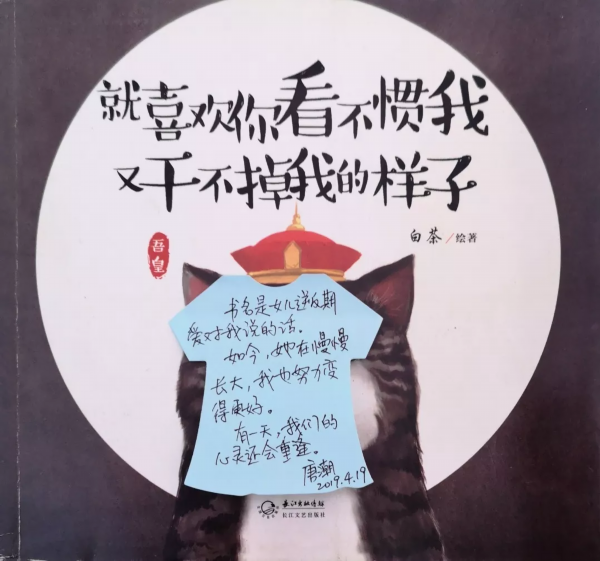 就喜欢你看不惯我
又干不掉我的样子
白茶/绘著
吾皇
书名是女儿逆反期
爱对我说的话。
如今,她在慢慢
长大,我也努力变
得更好。
有一天,我们的
心灵还会重逢。
唐潮
2019.4.19
长江出版传媒
长江文艺出版社